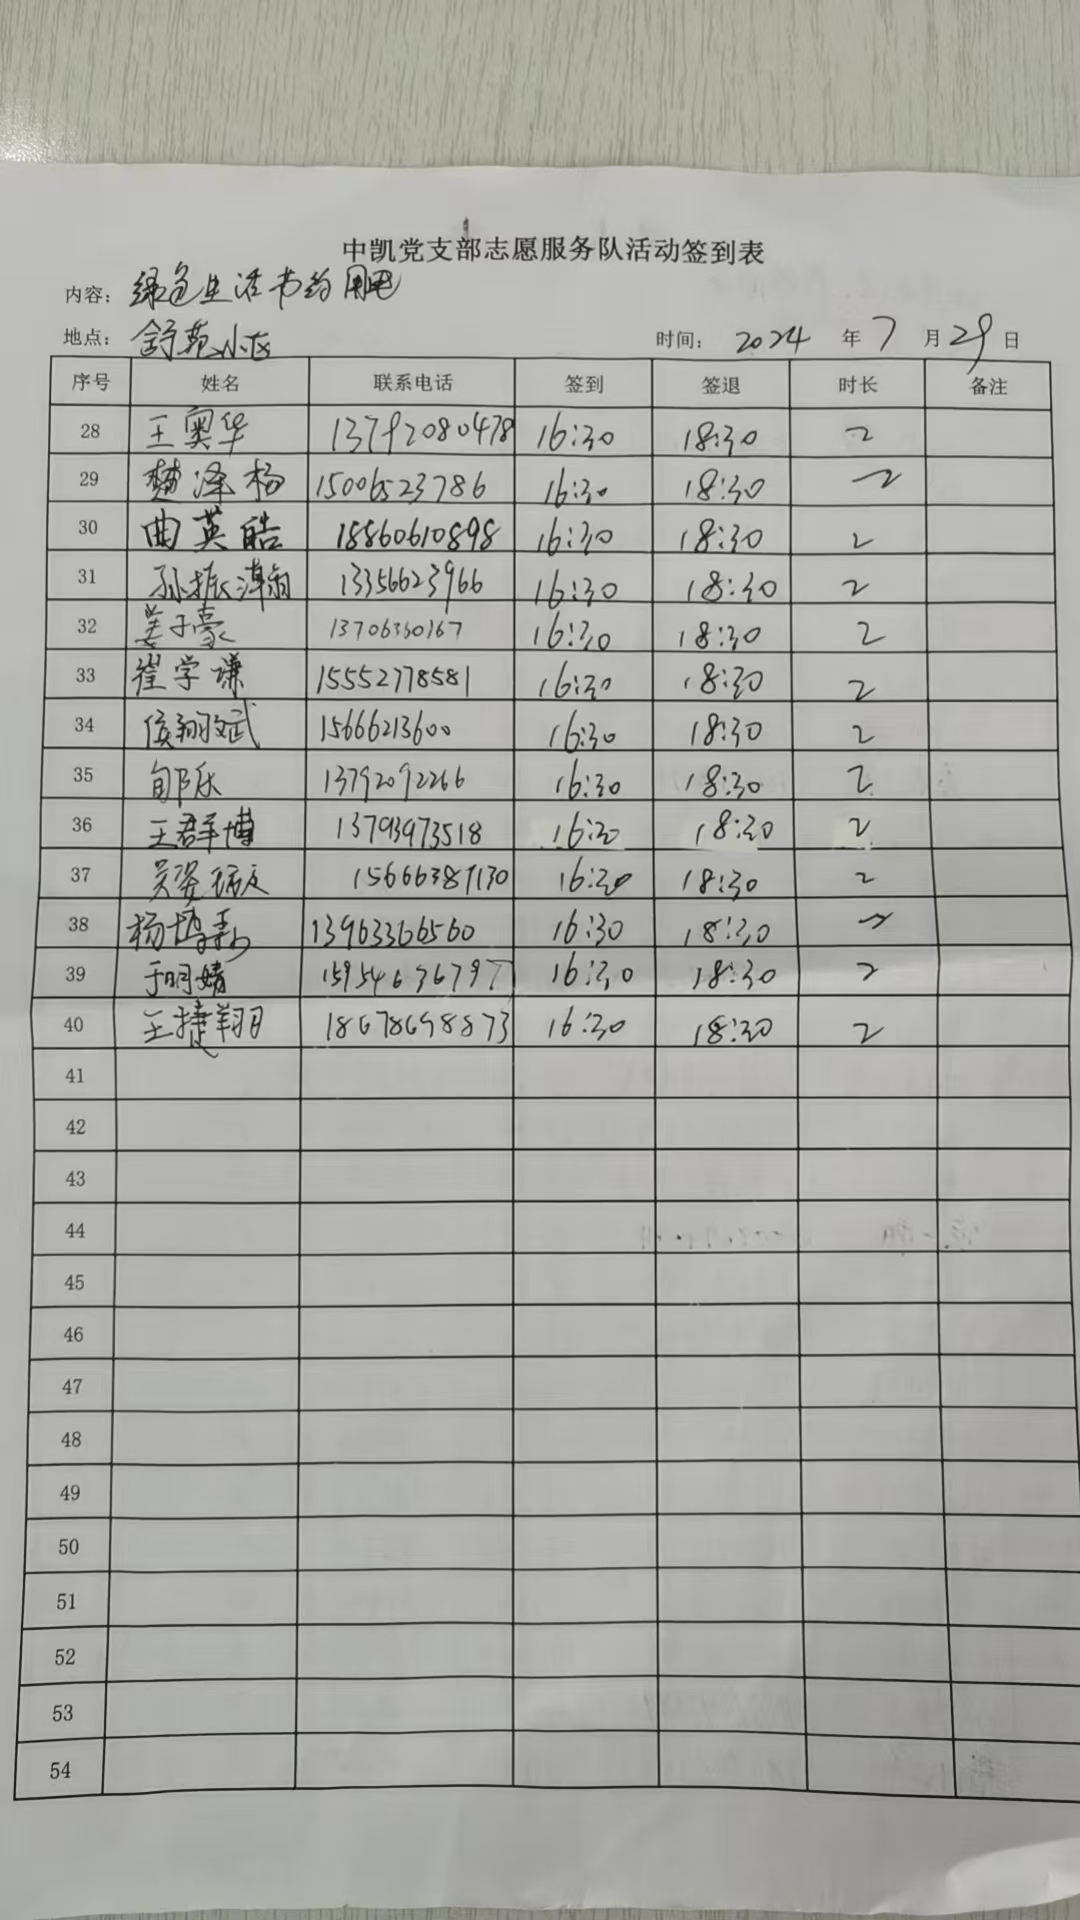 中凯党支部志愿服务队活动签到表
内容：绿色生活节约用电
地点：舒苑小区 时间：2024年7月29日
序号 姓名 联系电话 签到 签退 时长 备注
28 王奥华 13792080478 16:30 18:30 2
29 楚泽杨 15006523786 16:30 18:30 2
30 曲英皓 18860610898 16:30 18:30 2
31 孙振瀚 13356623966 16:30 18:30 2
32 姜子豪 13706360167 16:30 18:30 2
33 崔学谦 15552778581 16:30 18:30 2
34 侯翔斌 15666213600 16:30 18:30 2
35 郇乐 13792092266 16:30 18:30 2
36 王群博 13793973518 16:30 18:30 2
37 吴姿 15666389130 16:30 18:30 2
38 杨博 13963366560 16:30 18:30 2
39 于明婧 15954676797 16:30 18:30 2
40 王捷翔 18678698873 16:30 18:30 2
41
42
43
44
45
46
47
48
49
50
51
52
53
54